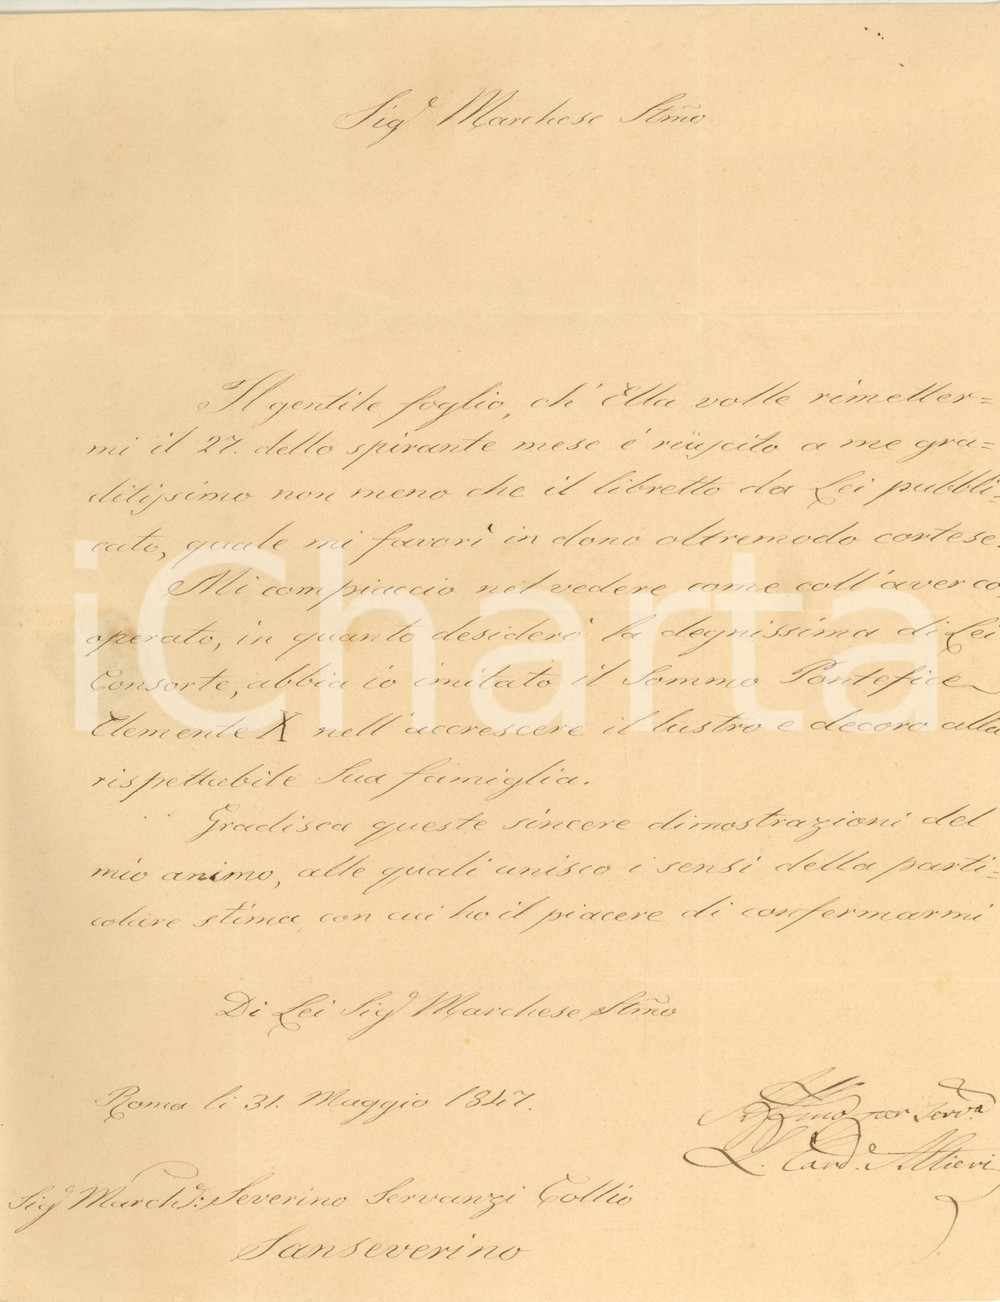 Sig.r Marchese Stm̃o
Il gentile foglio, ch' Ella volle rimetter=
mi il 27. dello spirante mese è riuscito a me gra=
ditissimo non meno che il libretto da Lei pubbli=
cato, quale mi favorì in dono oltremodo cortese.
Mi compiaccio nel vedere come coll'aver co
operato, in quanto desiderò la degnissima di Lei
Consorte, abbia io imitato il Sommo Pontefice
Clemente X nell'accrescere il lustro e decoro alla
rispettabile Sua famiglia.
Gradisca queste sincere dimostrazioni del
mio animo, alle quali unisco i sensi della parti=
colare stima, con cui ho il piacere di confermarmi
Di Lei Sig.r Marchese Stm̃o
Roma li 31. Maggio 1847.
Affmo per Serv.a
L. Card. Altieri
Sig.r March.e: Severino Servanzi Collio
Sanseverino
iCharta